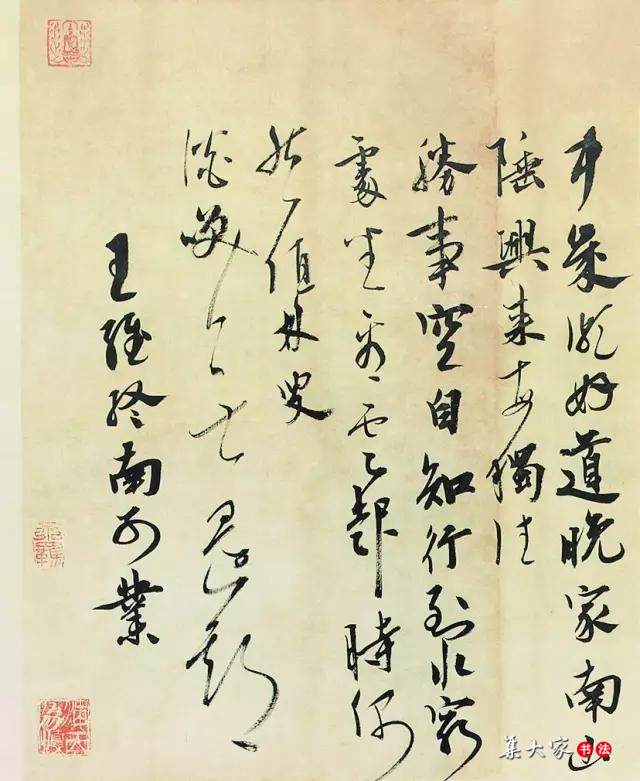 中歲頗好道晚家南山
陲興來每獨往
勝事空自知行到水窮
處坐看雲起時偶
然值林叟
談笑無還期
王維終南別業
集大家书法